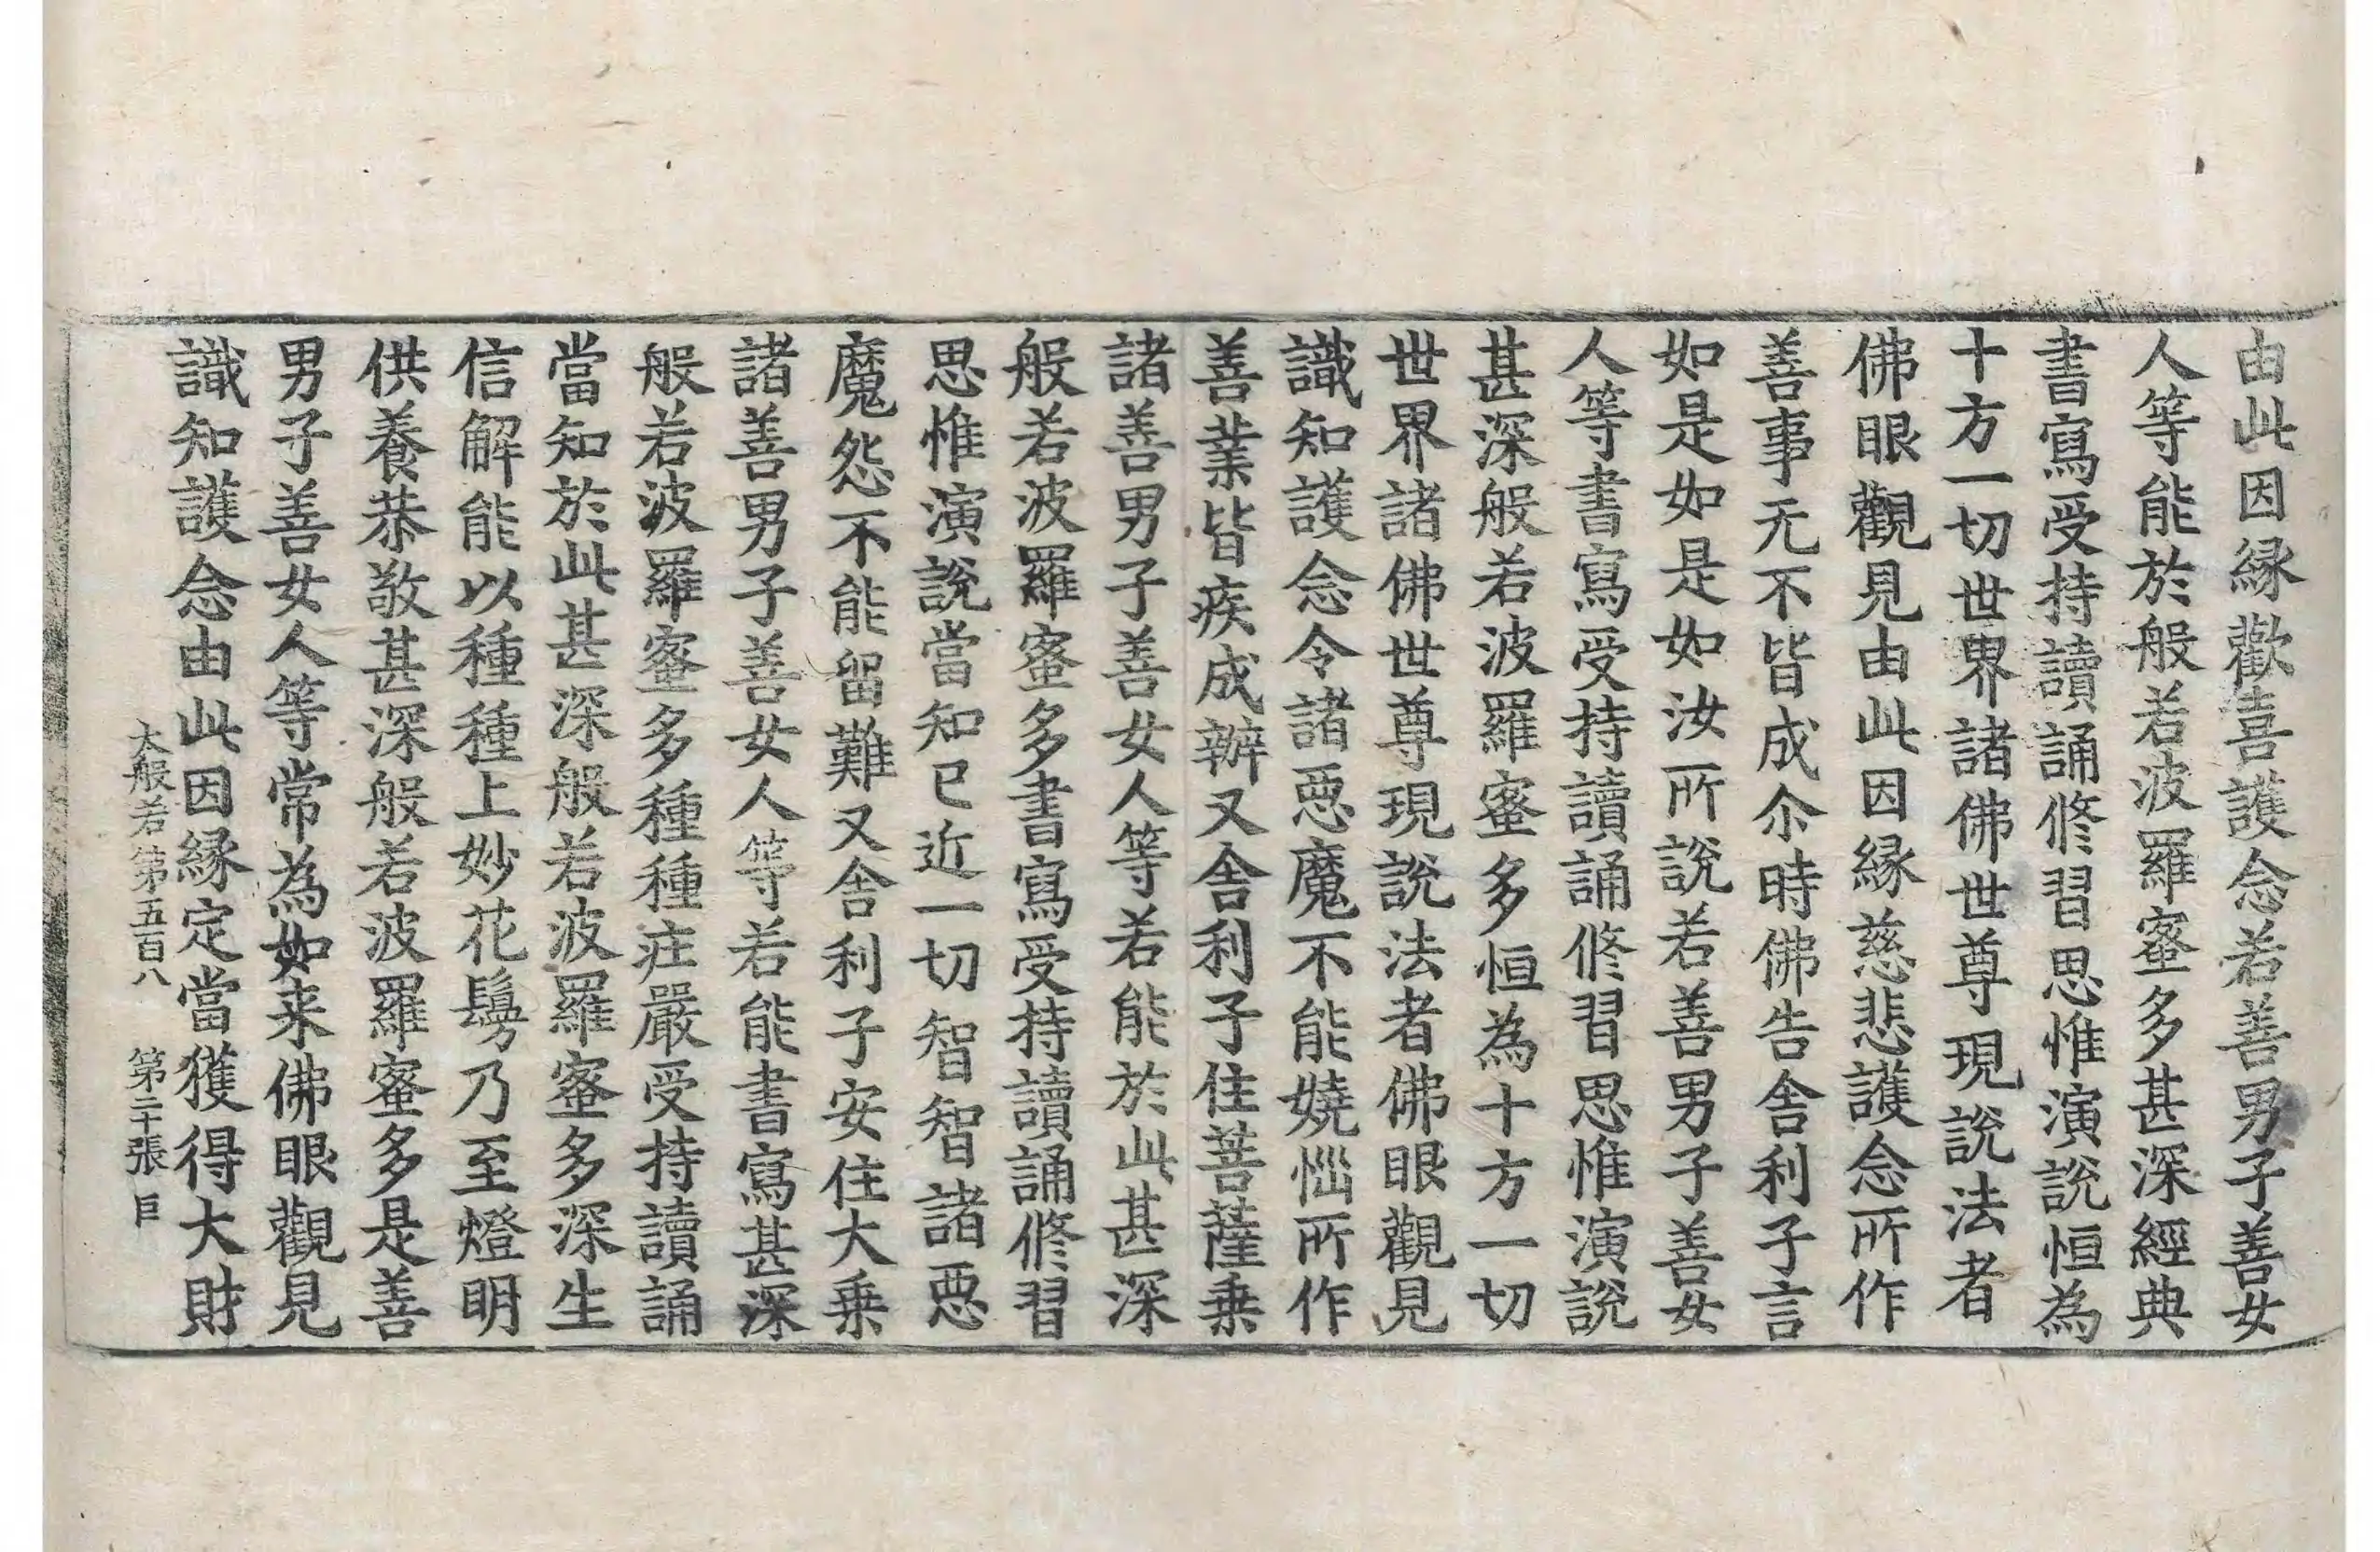 由此因縁歡喜護念若善男子善女
人等能於般若波羅蜜多甚深經典
書寫受持讀誦修習思惟演說恒為
十方一切世界諸佛世尊現說法者
佛眼觀見由此因縁慈悲護念所作
善事无不皆成尒時佛告舎利子言
如是如是如汝所說若善男子善女
人等書寫受持讀誦修習思惟演說
甚深般若波羅蜜多恒為十方一切
世界諸佛世尊現說法者佛眼觀見
識知護念令諸惡魔不能嬈惱所作
善業皆疾成辦又舎利子住菩薩乗
諸善男子善女人等若能於此甚深
般若波羅蜜多書寫受持讀誦修習
思惟演說當知已近一切智智諸惡
魔怨不能留難又舎利子安住大乗
諸善男子善女人等若能書寫甚深
般若波羅蜜多種種莊嚴受持讀誦
當知於此甚深般若波羅蜜多深生
信解能以種種上妙花鬘乃至燈明
供養恭敬甚深般若波羅蜜多是善
男子善女人等常為如来佛眼觀見
識知護念由此因縁定當獲得大財
大般若第五百八 第二十張 巨